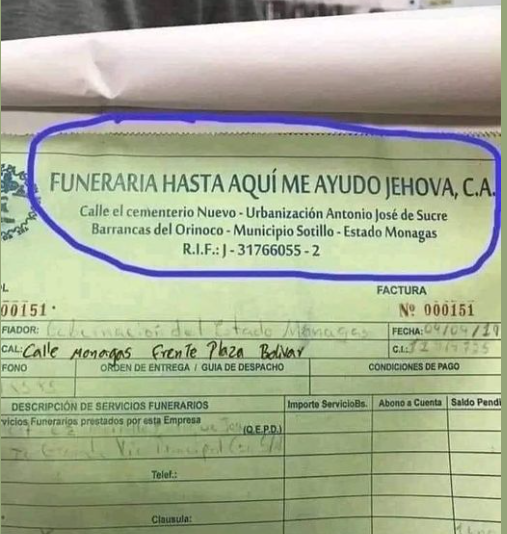 FUNERARIA HASTA AQUÍ ME AYUDO JEHOVA, C.A.
Calle el cementerio Nuevo - Urbanización Antonio José de Sucre
Barrancas del Orinoco - Municipio Sotillo - Estado Monagas
R.I.F.: J - 31766055 - 2
L
FACTURA
00151
Nº 000151
FIADOR: Gobernación del Estado Monagas
FECHA: 04/04/19
CAL: Calle Monagas Frente Plaza Bolívar
C.I.:
FONO
ORDEN DE ENTREGA / GUIA DE DESPACHO
CONDICIONES DE PAGO
DESCRIPCIÓN DE SERVICIOS FUNERARIOS
Importe ServicioBs.
Abono a Cuenta
Saldo Pendi
vicios Funerarios prestados por esta Empresa
(Q.E.P.D.)
Telef.:
Clausula: